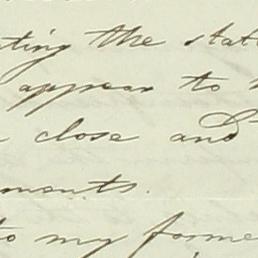 ting the stat
appear to
close and
ments.
to my forme